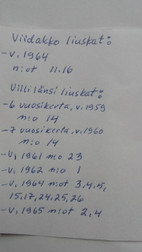 Viidakko liuskat:
-v. 1964
n:ot 11.16
Villi länsi liuskat:
-6 vuosikerta, v. 1959
n:o 14
-7 vuosikerta, v. 1960
n:o 14
-v. 1961 n:o 23
-v. 1962 n:o 1
-v. 1964 n:ot 3,4,15,
15,17,24,25,26
-v. 1965 n:ot 2,4